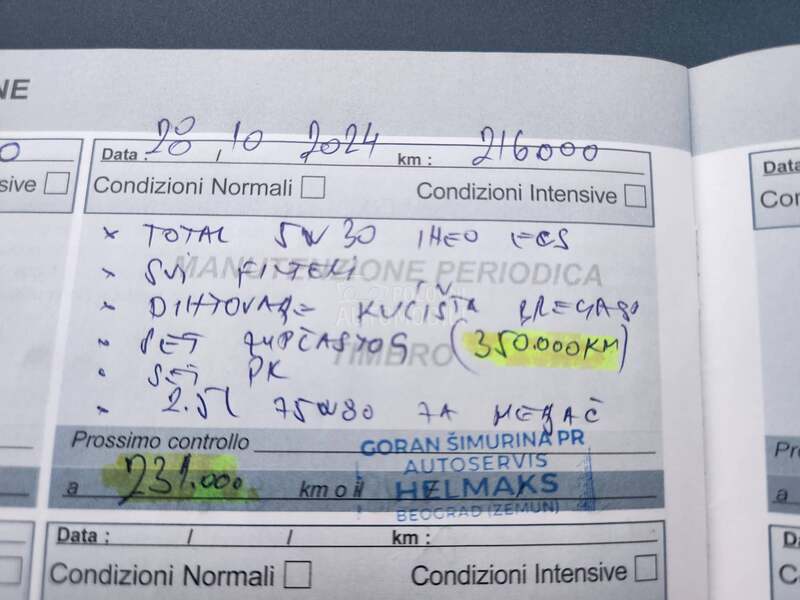 NE
O
sive
Data : 20 / 10 2024 km : 216000
Condizioni Normali Condizioni Intensive
× TOTAL 5W30 INEO ECS
MANUTENZIONE PERIODICA
× SVI FILTERI
× DIHTOVANJE KUĆIŠTA BREGASO
× SET ZUPČASTOG (350.000KM)
TIMBRO
• SET PK
× 2.5L 75W80 ZA MENJAČ
Prossimo controllo
GORAN ŠIMURINA PR
AUTOSERVIS
HELMAKS
BEOGRAD (ZEMUN)
a 231.000 km o il
Data : / / km :
Condizioni Normali Condizioni Intensive
nsive
Data
Con
Pro
a
Da
C